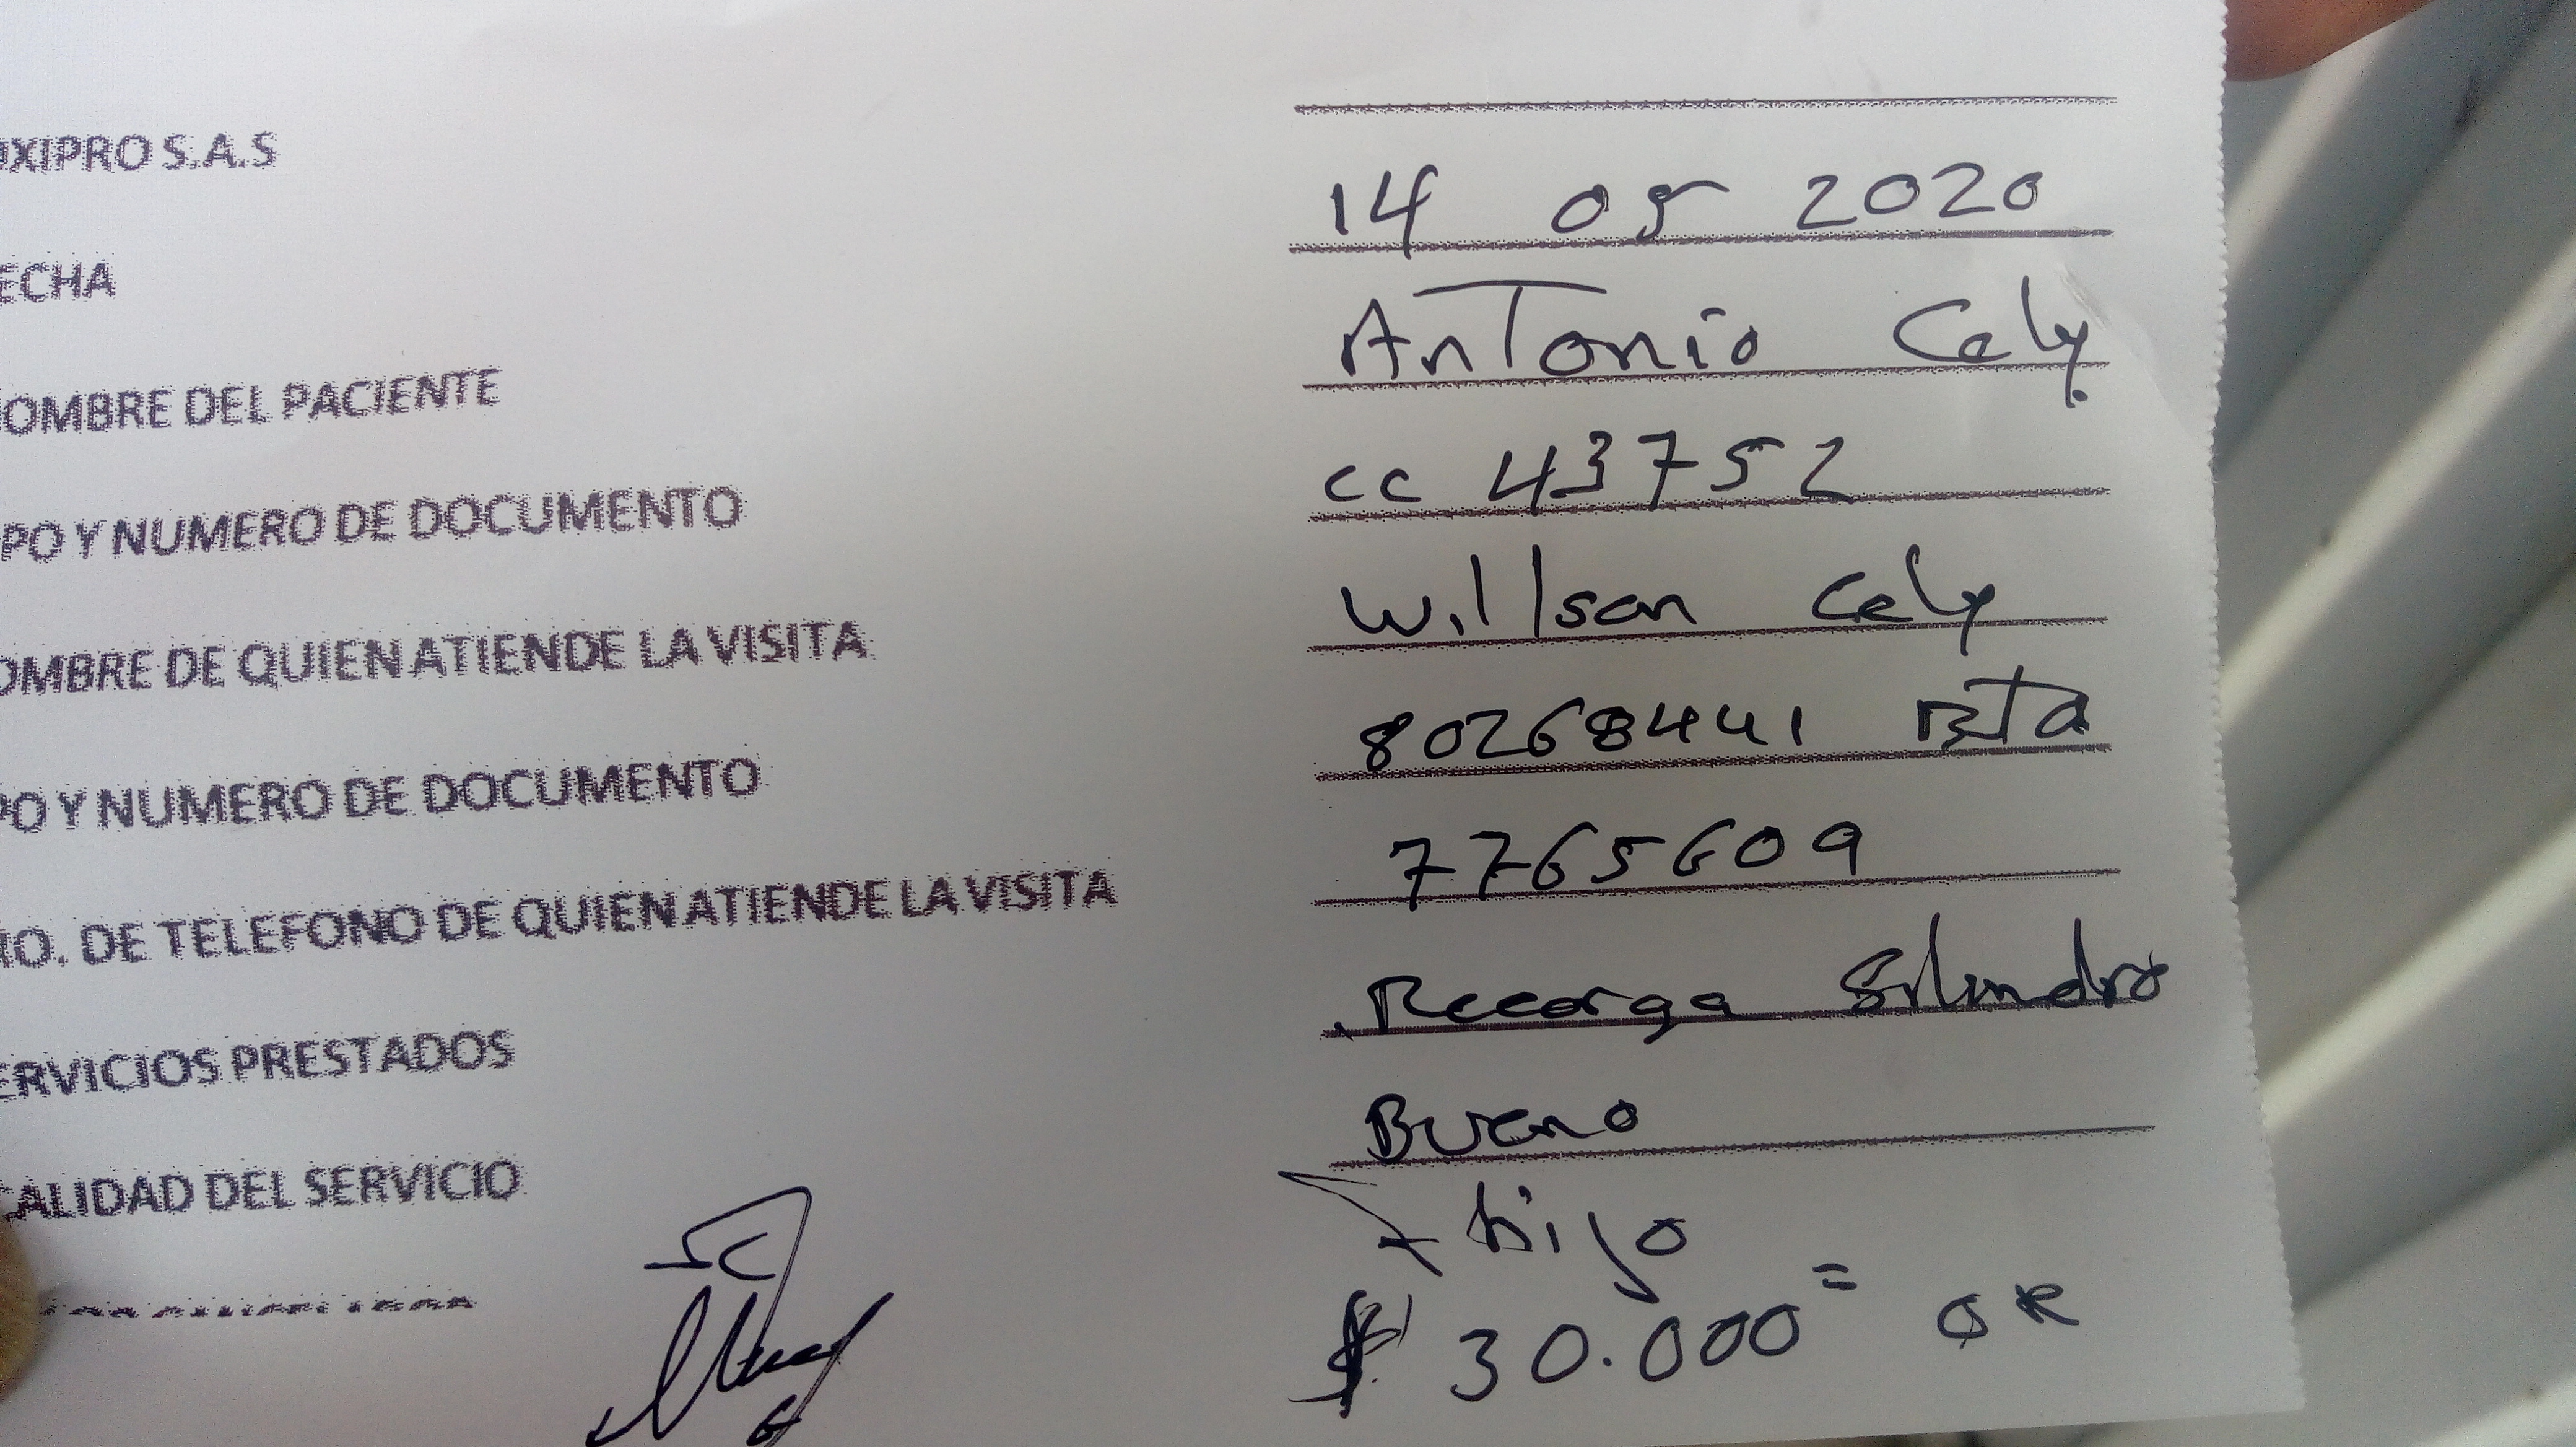 OXIPRO S.A.S
ECHA 14 05 2020
OMBRE DEL PACIENTE Antonio Cely
PO Y NUMERO DE DOCUMENTO cc 43752
OMBRE DE QUIEN ATIENDE LA VISITA Willson Cely
PO Y NUMERO DE DOCUMENTO 80268441 BTa
RO. DE TELEFONO DE QUIEN ATIENDE LA VISITA 7765609
ERVICIOS PRESTADOS Recarga Silindro
CALIDAD DEL SERVICIO Bueno
hijo
$ 30.000= OK